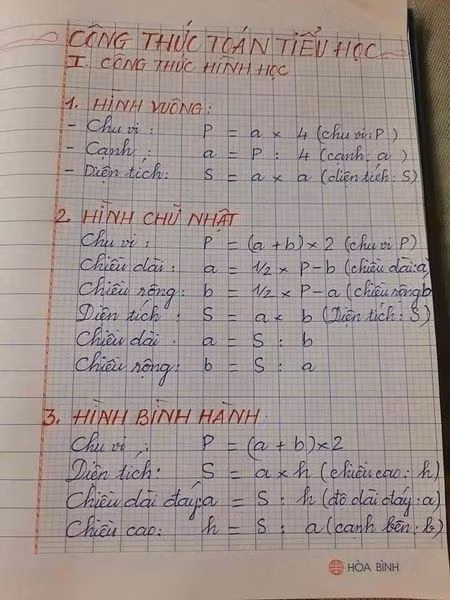 CÔNG THỨC TOÁN TIỂU HỌC
I. CÔNG THỨC HÌNH HỌC
1. HÌNH VUÔNG:
- Chu vi : P = a × 4 (chu vi: P)
- Cạnh : a = P : 4 (cạnh: a)
- Diện tích: S = a × a (diện tích: S)
2. HÌNH CHỮ NHẬT
Chu vi : P = (a + b) × 2 (chu vi P)
Chiều dài : a = 1/2 × P - b (chiều dài: a)
Chiều rộng: b = 1/2 × P - a (chiều rộng b
Diện tích : S = a × b (Diện tích: S)
Chiều dài : a = S : b
Chiều rộng: b = S : a
3. HÌNH BÌNH HÀNH
Chu vi : P = (a + b) × 2
Diện tích: S = a × h (chiều cao: h)
Chiều dài đáy: a = S : h (độ dài đáy: a)
Chiều cao: h = S : a (cạnh bên: b)
HÒA BÌNH